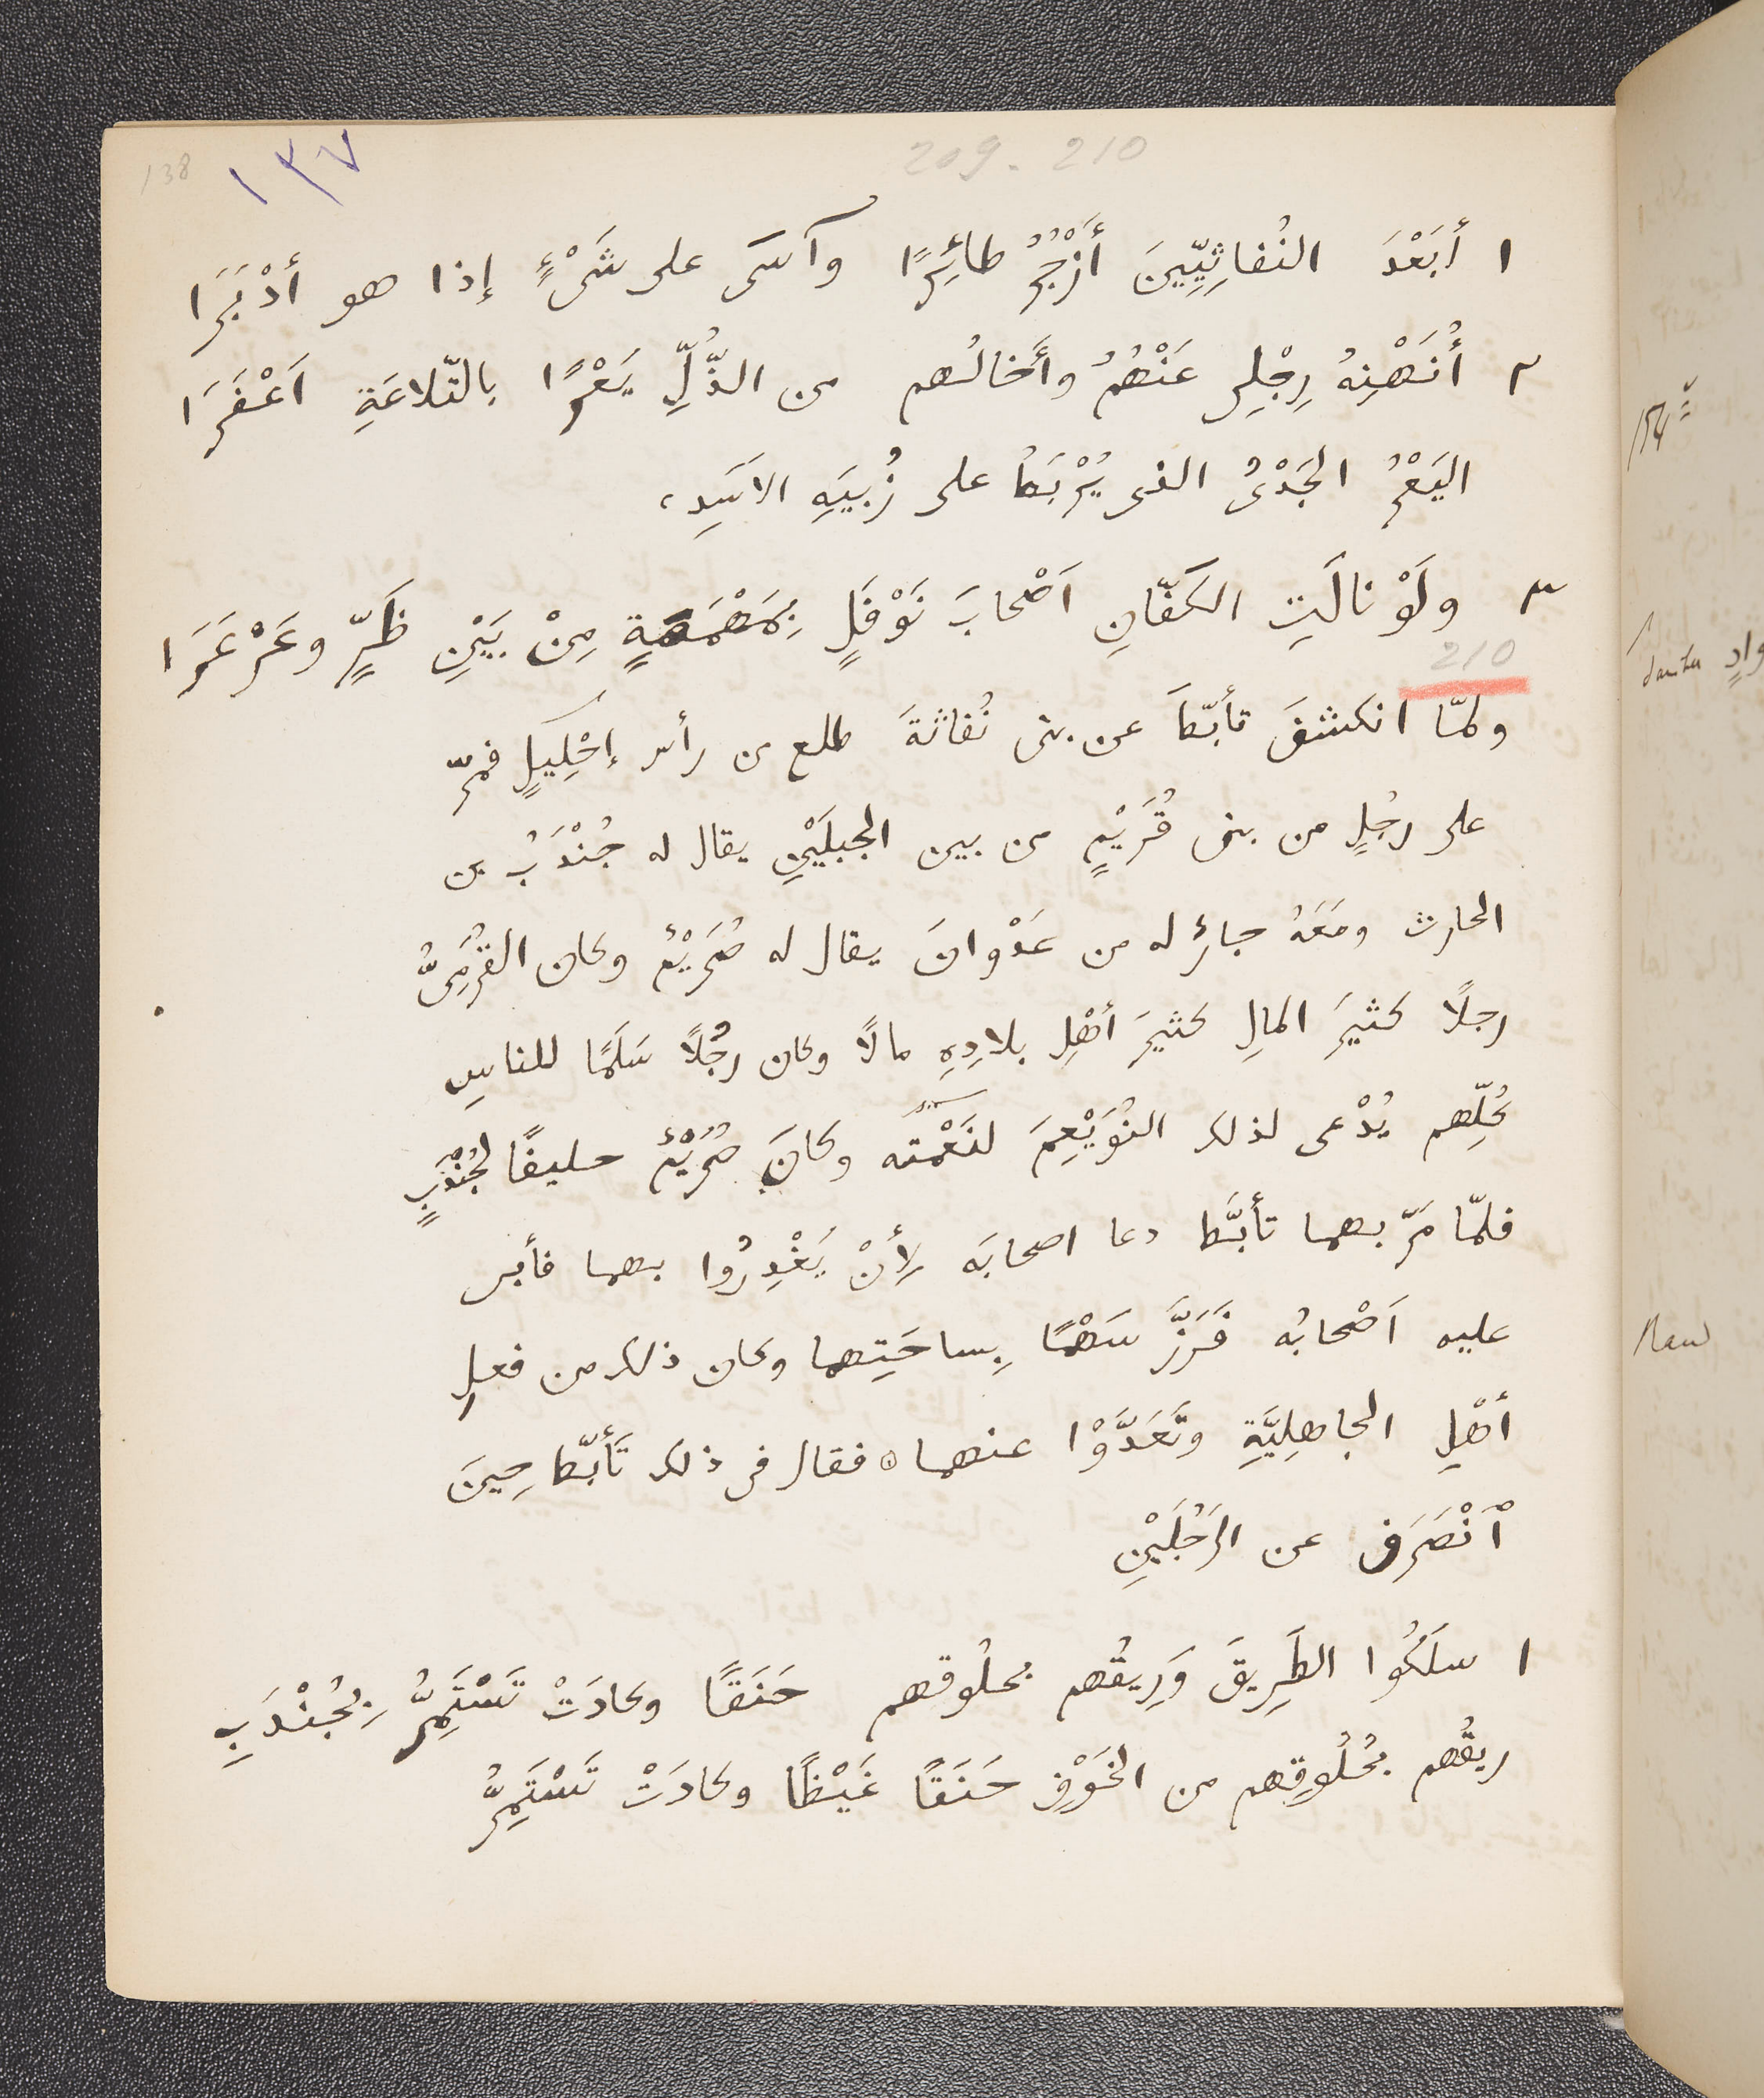 138 ١٣٧ 209 - 210
١ أَبَعْدَ النُفاثِيِّينَ أَزْجُرُ طائِرًا وآسَى على شَىْءٍ إذا هو أدْبَرَا
٢ أُنَهْنِهُ رِجْلِى عَنْهُمُ وأَخالُهم من الذُّلِّ يَعْرًا بالتّلاعَةِ اَعْفَرَا
اليَعْرُ الجَدْىُ الذى يُرْبَطُ على زُبيَةِ الاَسَدِ،
٣ ولَوْ نالَتِ الكَفّانِ اَصْحابَ نَوْفَلٍ بِمَهْمَهةٍ مِنْ بَيْنِ ظَرٍّ وعَرْعَرَا
210
ولمّا انكشفَ تأبّطَ عن بنى نُفاثةَ طلع من رأس إحْلِيلٍ فمرّ
على رجُلٍ من بنى قُرَيْمٍ من بين الجبلَيْنِ يقال له جُنْدَبُ بن
الحارث ومَعَهُ جارٌ له من عَدْوانَ يقال له صُرَيْمٌ وكان القُرَمِىُّ
رجلًا كثيرَ المالِ كثيرَ أهْلِ بلادِهِ مالًا وكان رجُلًا سَلَمًا للناسِ
كُلِّهم يُدْعى لذلك النُوَيْعِمَ لنَعْمَته وكانَ صُرَيْمٌ حليفًا لجُنْدَبٍ
فلمّا مَرّ بهما تأبَّط دعا اصحابَه لِأَنْ يَغْدِرُوا بهما فأبى
عليه اَصْحابُه فَرَزَّ سَهْمًا بِساحَتِهما وكان ذلك من فعلِ
أهْلِ الجاهلِيَّةِ وتَعَدَّوْا عنهما ٥ فقال فى ذلك تَأَبّطَ حِينَ
ٱنْصَرَف عن الرَجُلَيْنِ
١ سلَكُوا الطَرِيقَ وَرِيقُهم بحلُوقهم حَنَقًا وكادَتْ تَسْتَمِرُّ بِجُنْدَبِ
ريقُهم بحُلُوقِهم من الخَوْفِ حَنَقًا غَيْظًا وكادَتْ تَسْتَمِرُّ